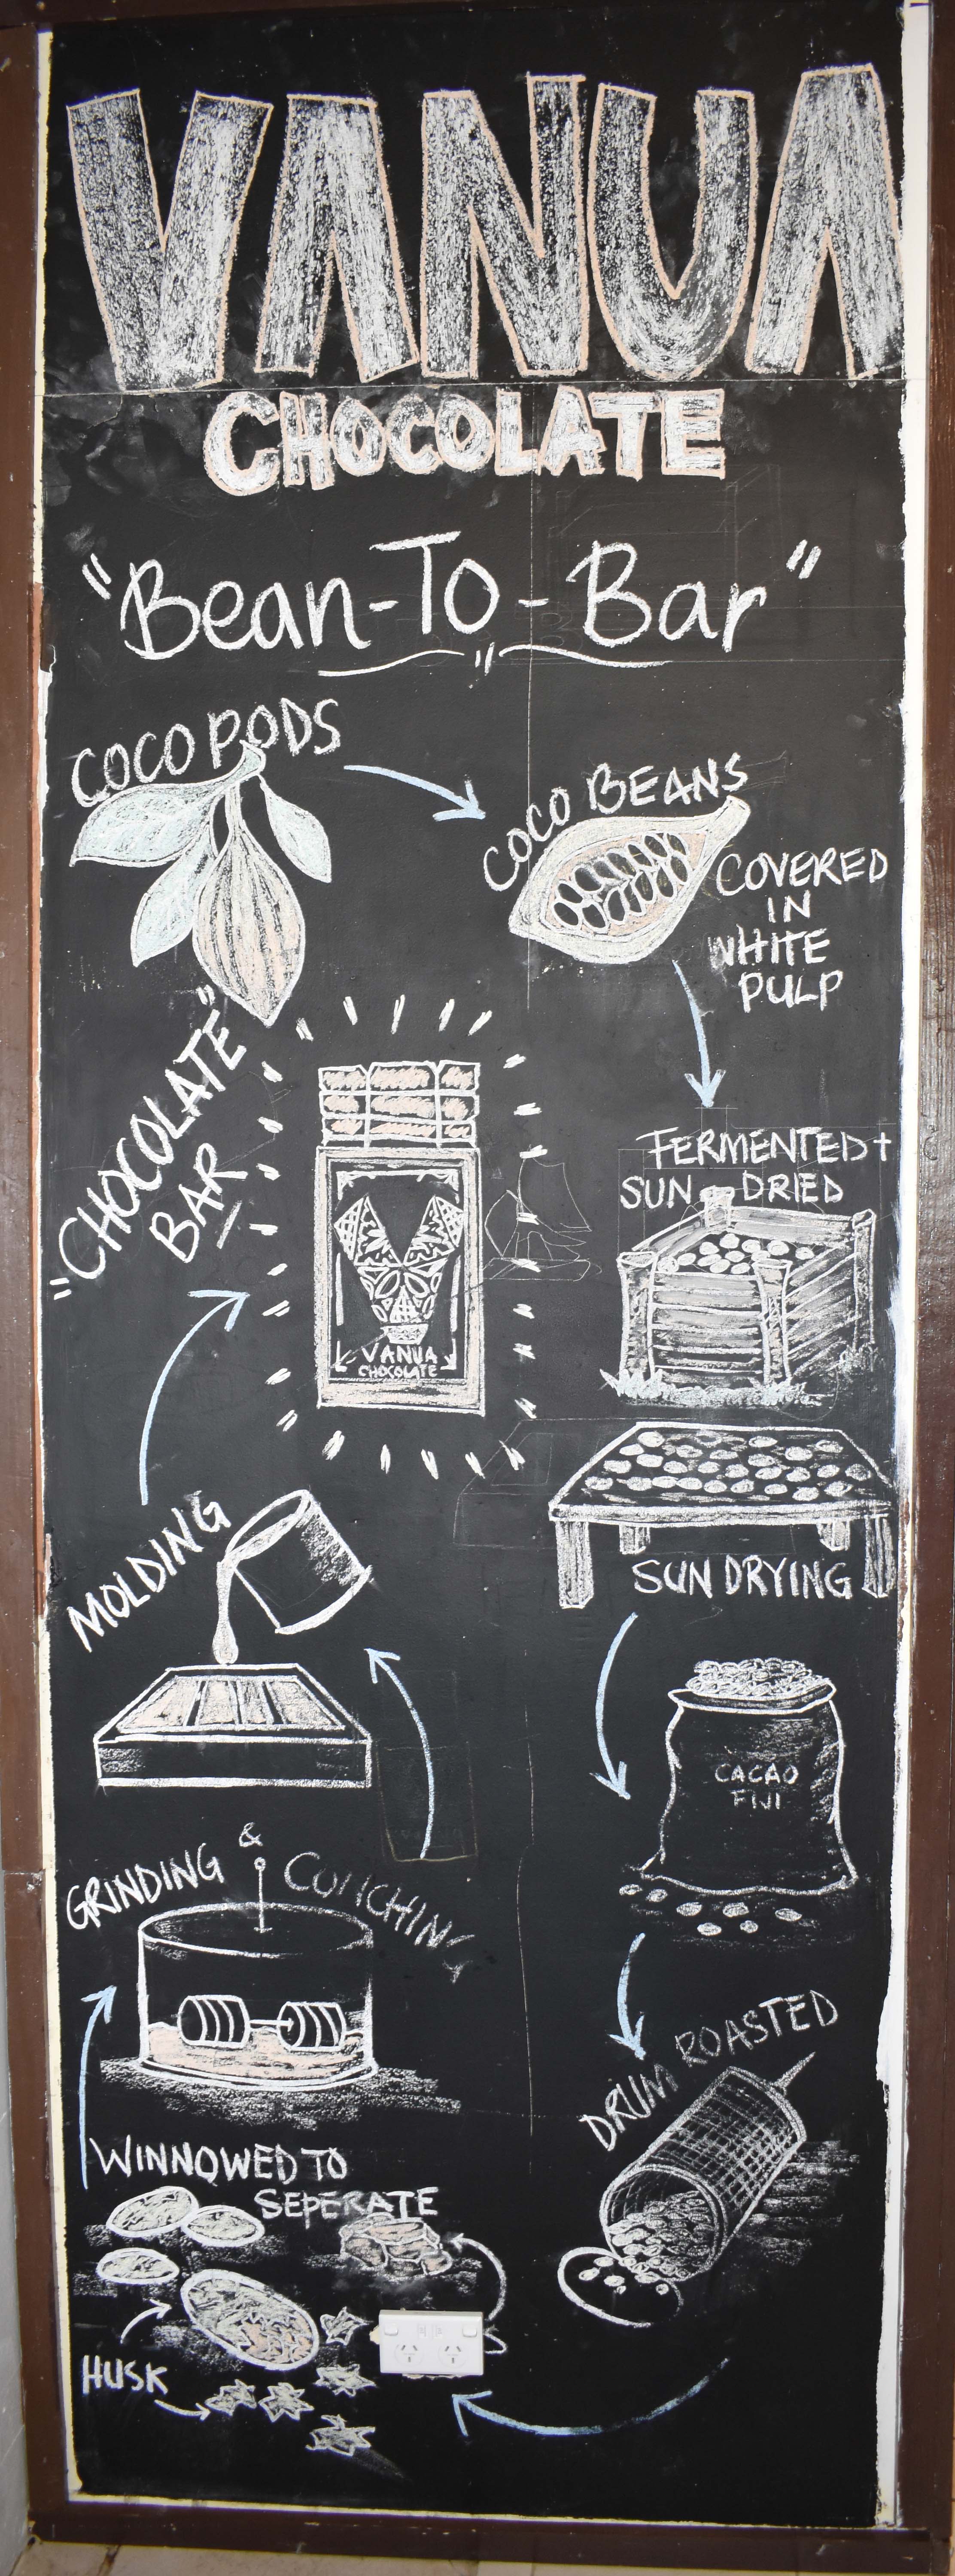 VANUA
CHOCOLATE
"Bean-To-Bar"
COCO PODS
COCO BEANS
COVERED
IN
WHITE
PULP
FERMENTED +
SUN - DRIED
SUN DRYING
CACAO
FIJI
DRUM ROASTED
WINNOWED TO
SEPERATE
HUSK
GRINDING & CONCHING
MOLDING
"CHOCOLATE"
BAR
VANUA
CHOCOLATE